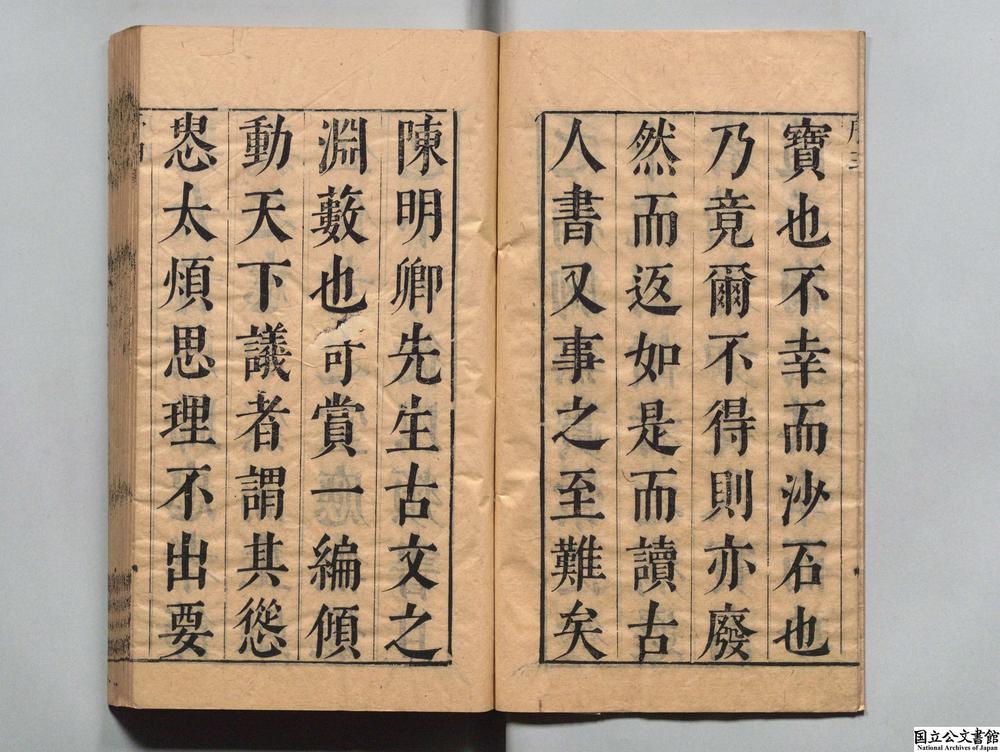 寶也不幸而沙石也
乃竟爾不得則亦廢
然而返如是而讀古
人書又事之至難矣
陳明卿先生古文之
淵藪也可賞一編傾
動天下議者謂其慫
恖太煩思理不出要
国立公文書館
National Archives of Japan